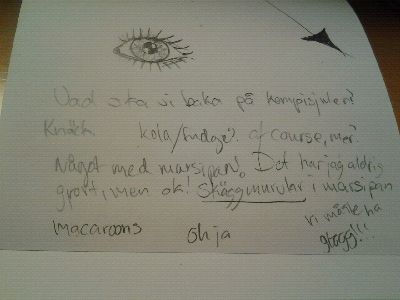 Vad ska vi baka på kompisjulen?
Knäck kola/fudge? of course, mer?
Något med marsipan? Det har jag aldrig
gjort, men ok! Skäggmurklor i marsipan
macaroons oh ja
vi måste ha
glögg!!!